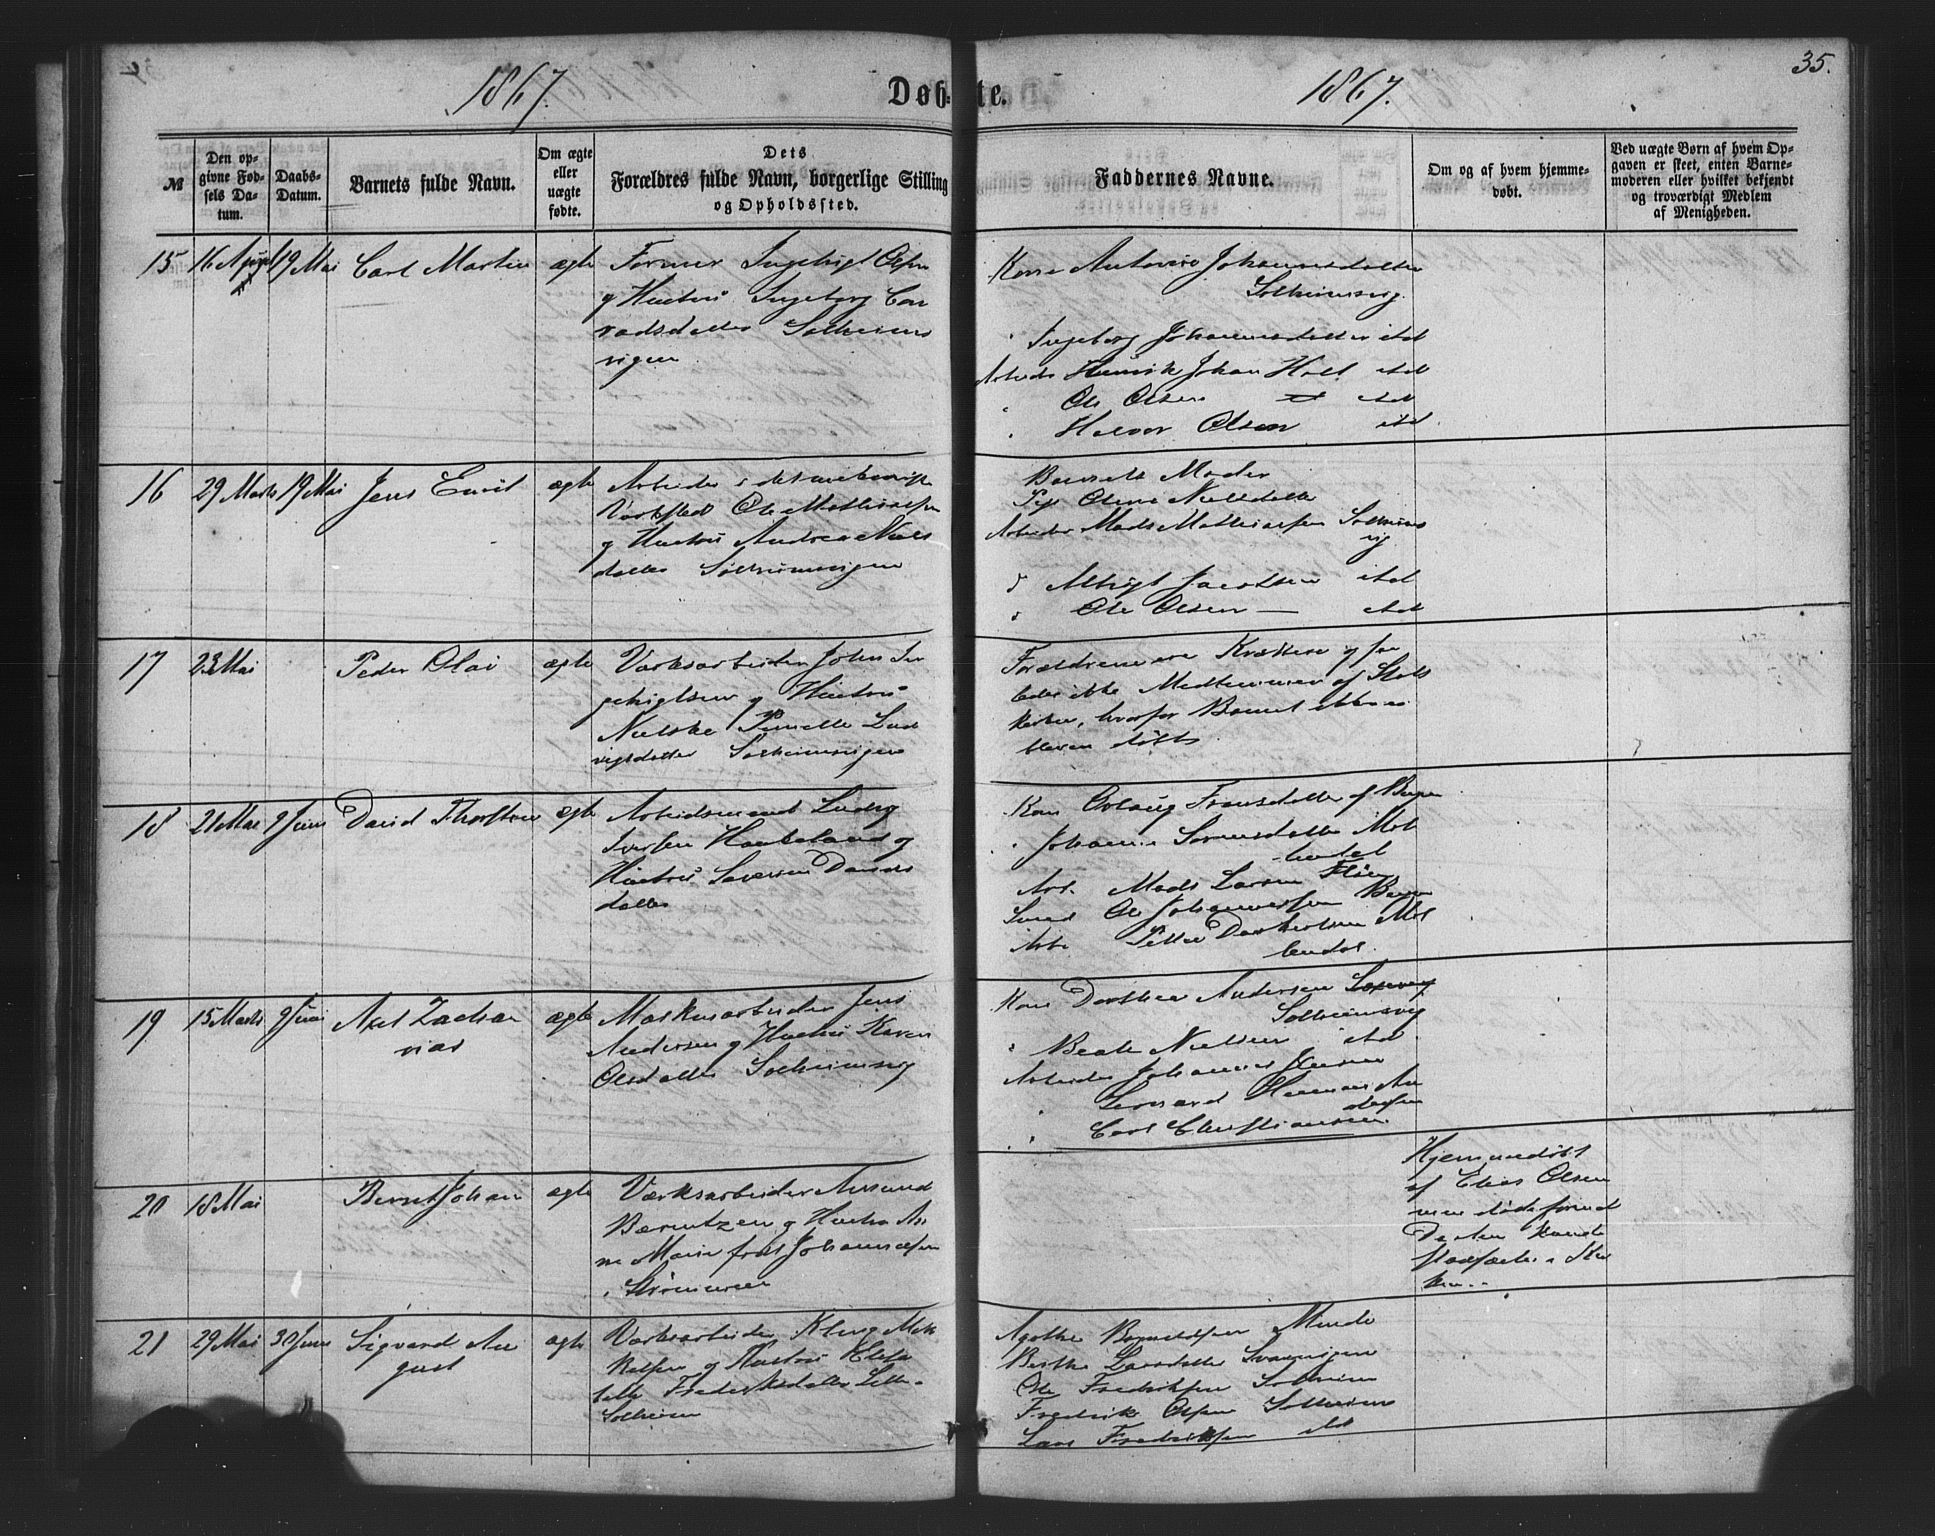 35.
1867.
Døb-
te.
1867.
№
Den op-
givne Fød-
sels Da-
tum.
Daabs-
Datum.
Barnets fulde Navn.
Om ægte
eller
uægte
fødte.
Dets
Forældres fulde Navn, borgerlige Stilling
og Opholdssted.
Faddernes Navne.
Om og af hvem hjemme-
døbt.
Ved uægte Børn af hvem Op-
gaven er skeet, enten Barne-
moderen eller hvilket bekjendt
og troværdigt Medlem
af Menigheden.
15
16 April
19 Mai
Carl Martin
ægte
Former Ingebrigt Olsen
og Hustru Ingeborg Con
radsdatter Solheims
vigen
Kone Johannesdatter
Solheimsvig
" Ingeborg Johannesdatter itd
Arbeids Henrik Johan Holt itd
" Ole Olsen itd
" Halvor Olsen itd
16
29 Marts
19 Mai
Jens Emil
ægte
Arbeider i det mekaniske
Værksted Ole Mathiassen
og Hustru Andrea Niels
datter Solheimsvigen
Barnets Moder
Pige Oline Nielsdatter
Arbeider Mads Mathiassen Solheims
vig
" Jacobsen itd
" Ole Olsen — itd
17
23 Mai
Peder Olai
ægte
Værksarbeider John In
gebrigtsen og Hustru
Pernille Lud
vigsdatter Solheimsvigen
Forældrene ere Kvækere og saa
ledes ikke Medlemmer af Stats
kirken, hvorfor Barnet ikke er
bleven døbt.
18
21 Mai
9 Juni
David Thorsten
ægte
Arbeidsmand Ludvig
Iversen Haukeland og
Hustru Davids
datter
Kone Fransdatter af Bergen
" Johanne Sørensdatter Møl
lendal
Arb. Mads Larsen
Ole Johannessen Bergen
Arb. Møl
lendal.
19
15 Marts
9 Juni
Axel Zacha
rias
ægte
Maskinarbeider Jens
Andersen og Hustru Karen
Olsdatter Solheimsvig
Kone Dorthea Andersen
Solheimsvig
" Beate Nielsen itd.
Arbeider Johannes Jensen
" Leonard Herman An
dersen
" Carl Christiansen
20
18 Mai
Bernt Johan
ægte
Værksarbeider Amund
Berntzen og Hustru An
ne Marie født Johannesen
i Strømmen
Hjemmedøbt
af Elias Olsen
men døde forend
Daaben kunde
stadfæstes i Kir
ken.
21
29 Mai
30 Juni
Sigvard Au
gust
ægte
Værksarbeider Mik
kelsen og Hustru Elisa
beth Frederiksdatter Lille
Solheim
Agathe Minde
Berthe Larsdatter
Ole Fredriksen Solheim
Fredrik Olsen Solheim
Lars Fredriksen itd